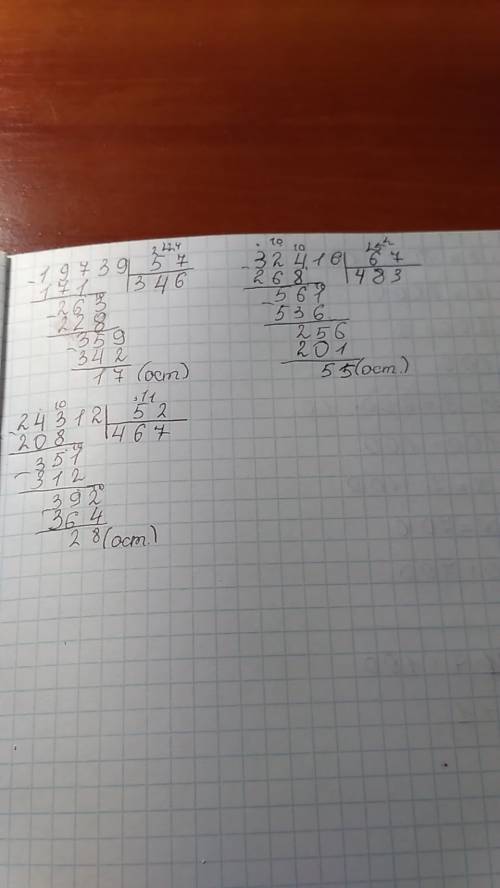 2 4 4
19739 57
- 171 346
- 263
228
- 359
342
17 (ост)
10 10
32416 67
- 268 483
561
- 536
256
201
55 (ост.)
10 11
24312 52
- 208 467
351
- 312
392
- 364
28 (ост.)